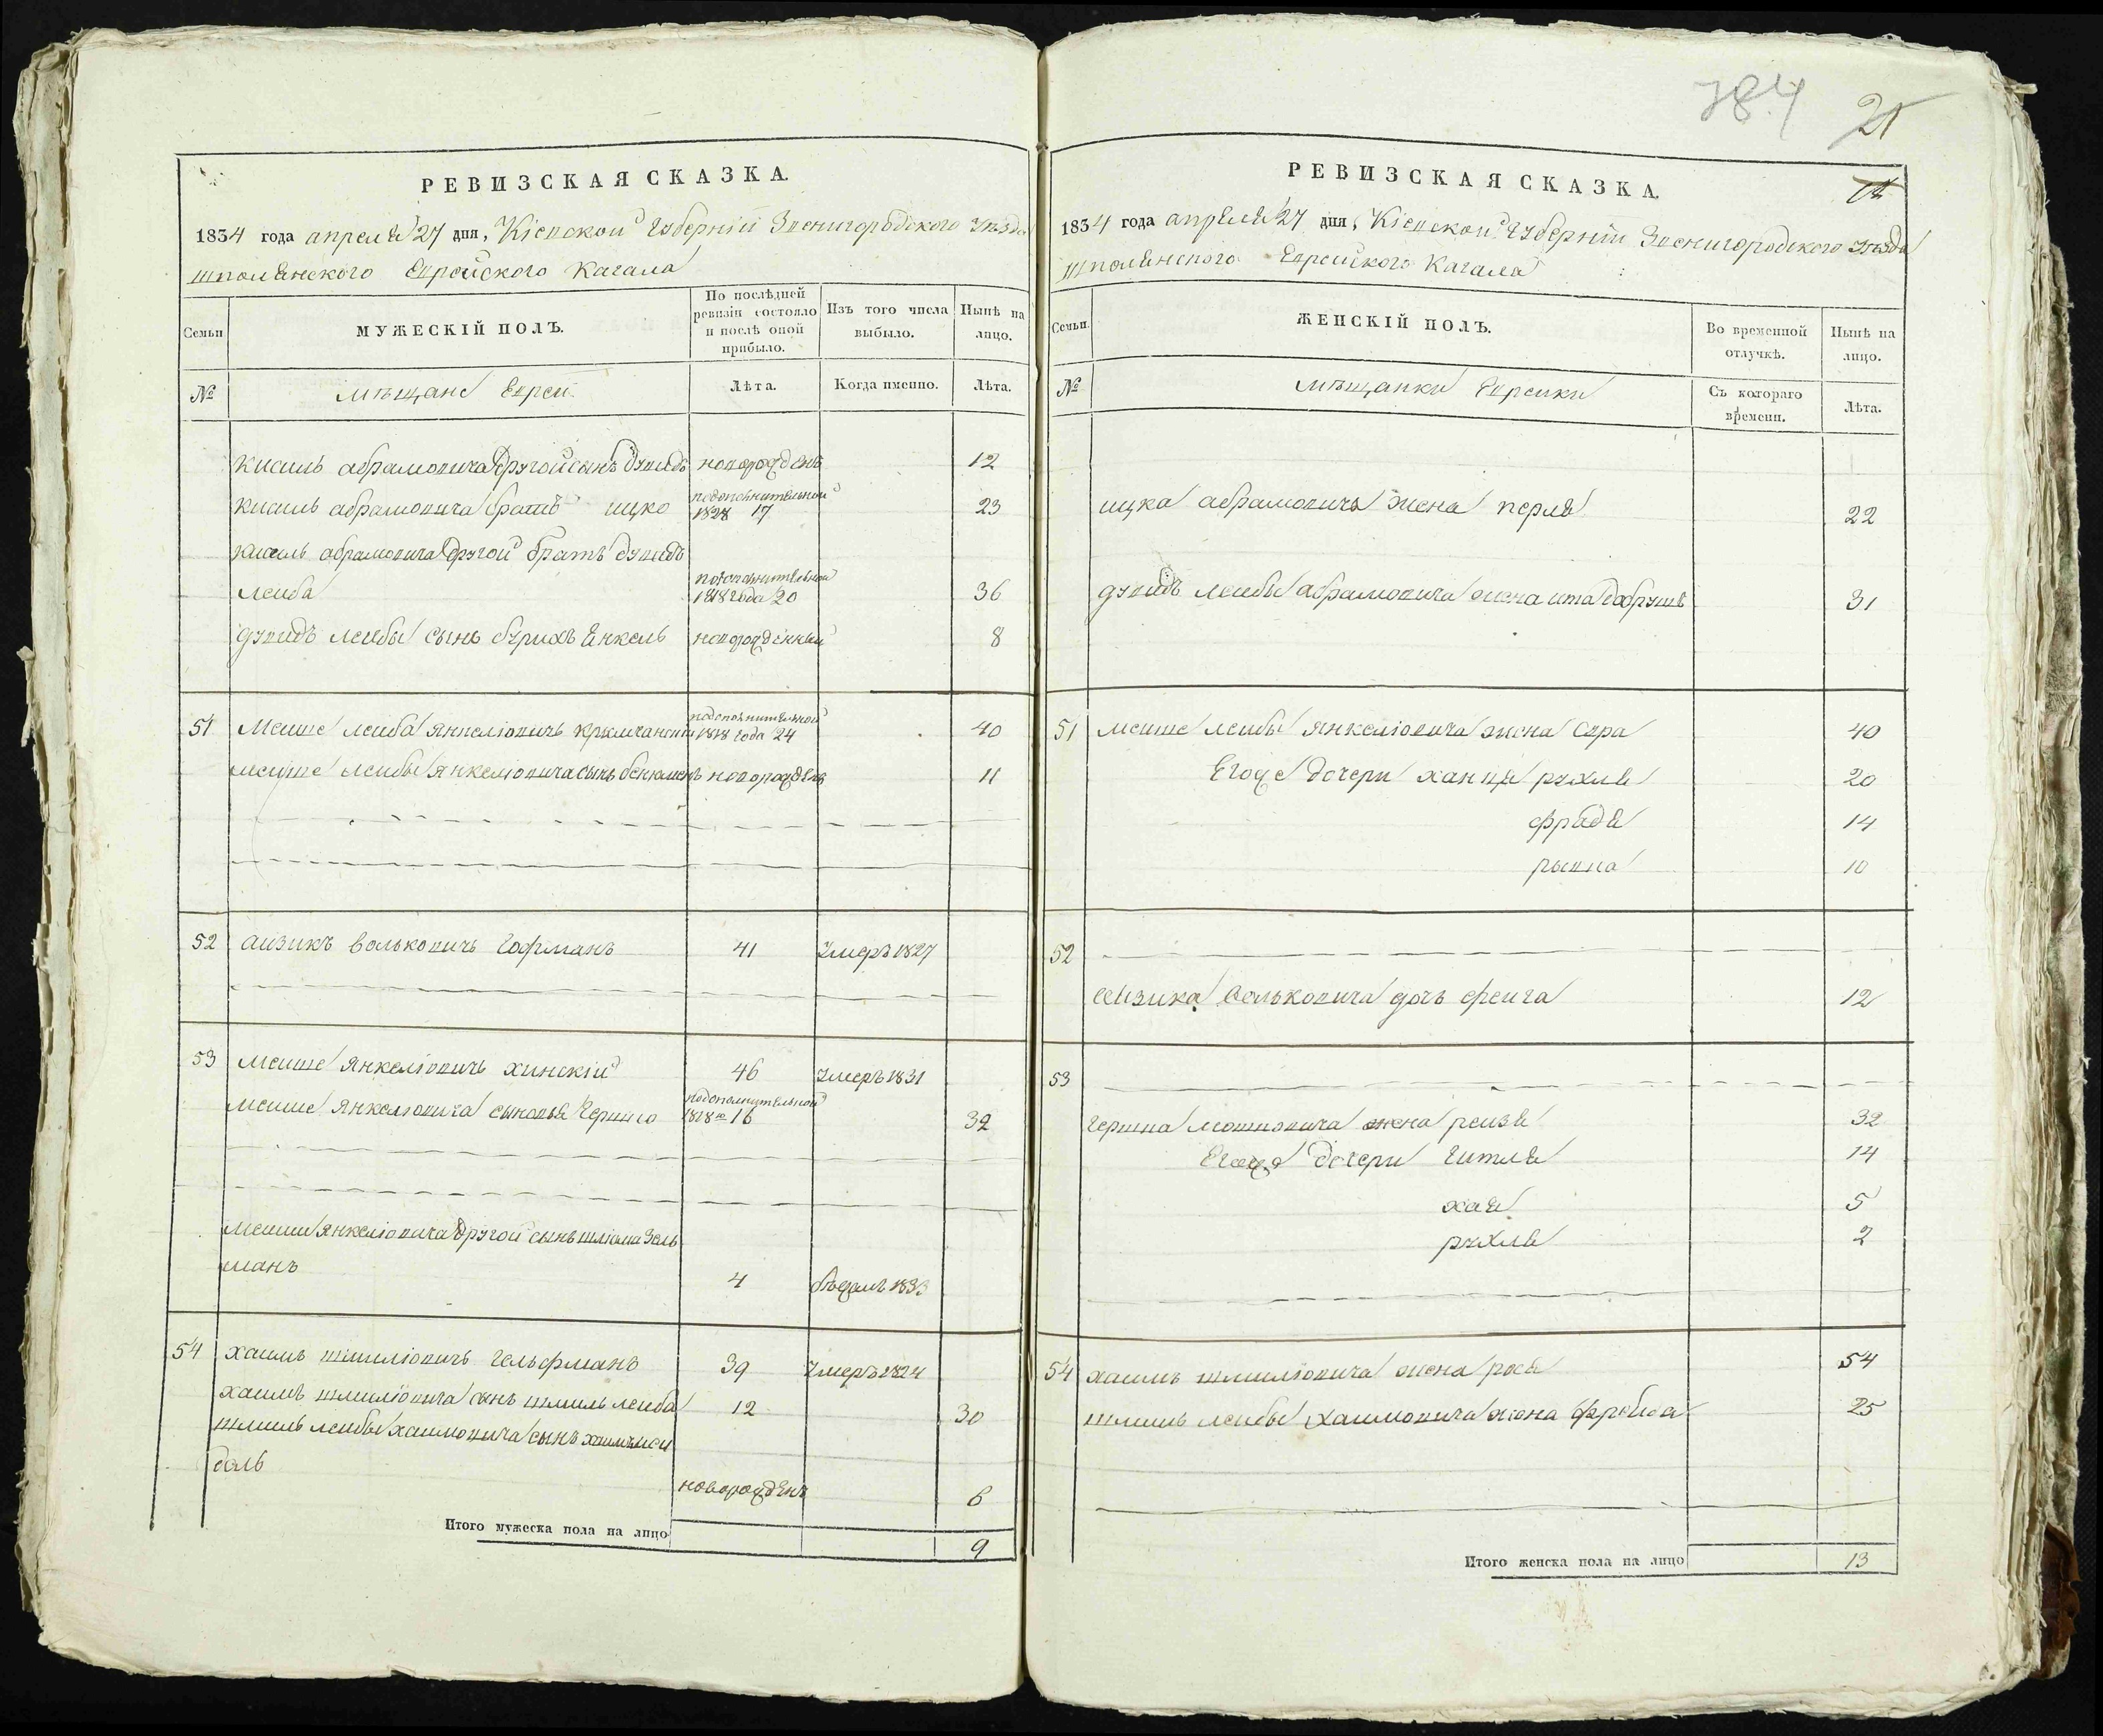 784 21
РЕВИЗСКАЯ СКАЗКА.
1834 года апреля 27 дня, Кіевской Губерніи Звенигородского Уѣзда
шполянского Еврейского Кагала
Семьи
МУЖЕСКІЙ ПОЛЪ.
По послѣдней ревизіи состояло и послѣ оной прибыло.
Изъ того числа выбыло.
Нынѣ на лицо.
№ мѣщане Евреи Лѣта. Когда именно. Лѣта.
кисиль абрамовича другой сынъ дувидъ новорожденъ 12
кисиль абрамовича братъ ицко подополнительной 1828 17 23
кисель абрамовича другой братъ дувидъ
лейба подополнительной 1818 года 20 36
дувидъ лейбы сынъ бурихъ Енкель новорожденный 8
51 Меише лейба янкелiовичь подополнительной 1818 года 24 40
меише лейбы янкелiовича сынъ бенюменъ новорожденъ 11
52 аизикъ волковичь Гофманъ 41 Умеръ 1827
53 меише янкелiовичь хинскiй 46 умеръ 1831
меише янкелiовича сыновья Гершко подополнительной 1818го 16 32
меиши янкелiовича другой сынъ шлiома Зель
манъ 4 бѣжалъ 1833
54 хаимъ шмилiовичь гельфманъ 39 Умеръ 1824
хаимъ шмилiовича сынъ шмиль лейба 12 30
шмиль лейбы хаимовича сынъ хаимъ мен
дель
новорожденъ 6
Итого мужеска пола на лицо 9
РЕВИЗСКАЯ СКАЗКА.
14
1834 года апреля 27 дня, Кіевской Губерніи Звенигородского Уѣзда
шполянского Еврейского Кагала
Семьи.
ЖЕНСКІЙ ПОЛЪ.
Во временной отлучкѣ.
Нынѣ на лицо.
№ мѣщанки Еврейки Съ котораго времени. Лѣта.
ицка абрамовича жена перля 22
дувидъ лейбы абрамовича жена ита добрушъ 31
51 меише лейбы янкелiовича жена сура 40
Егоже дочери ханця рухля 20
фрядя 14
рывка 10
52
аизика волковича дочь фейга 12
53
гершка мошковича жена рейзя 32
Егоже дочери Гитля 14
хая 5
рухля 2
54 хаимъ шмилiовича жена рося 54
шмиль лейбы хаимовича жена фрейда 25
Итого женска пола на лицо 13